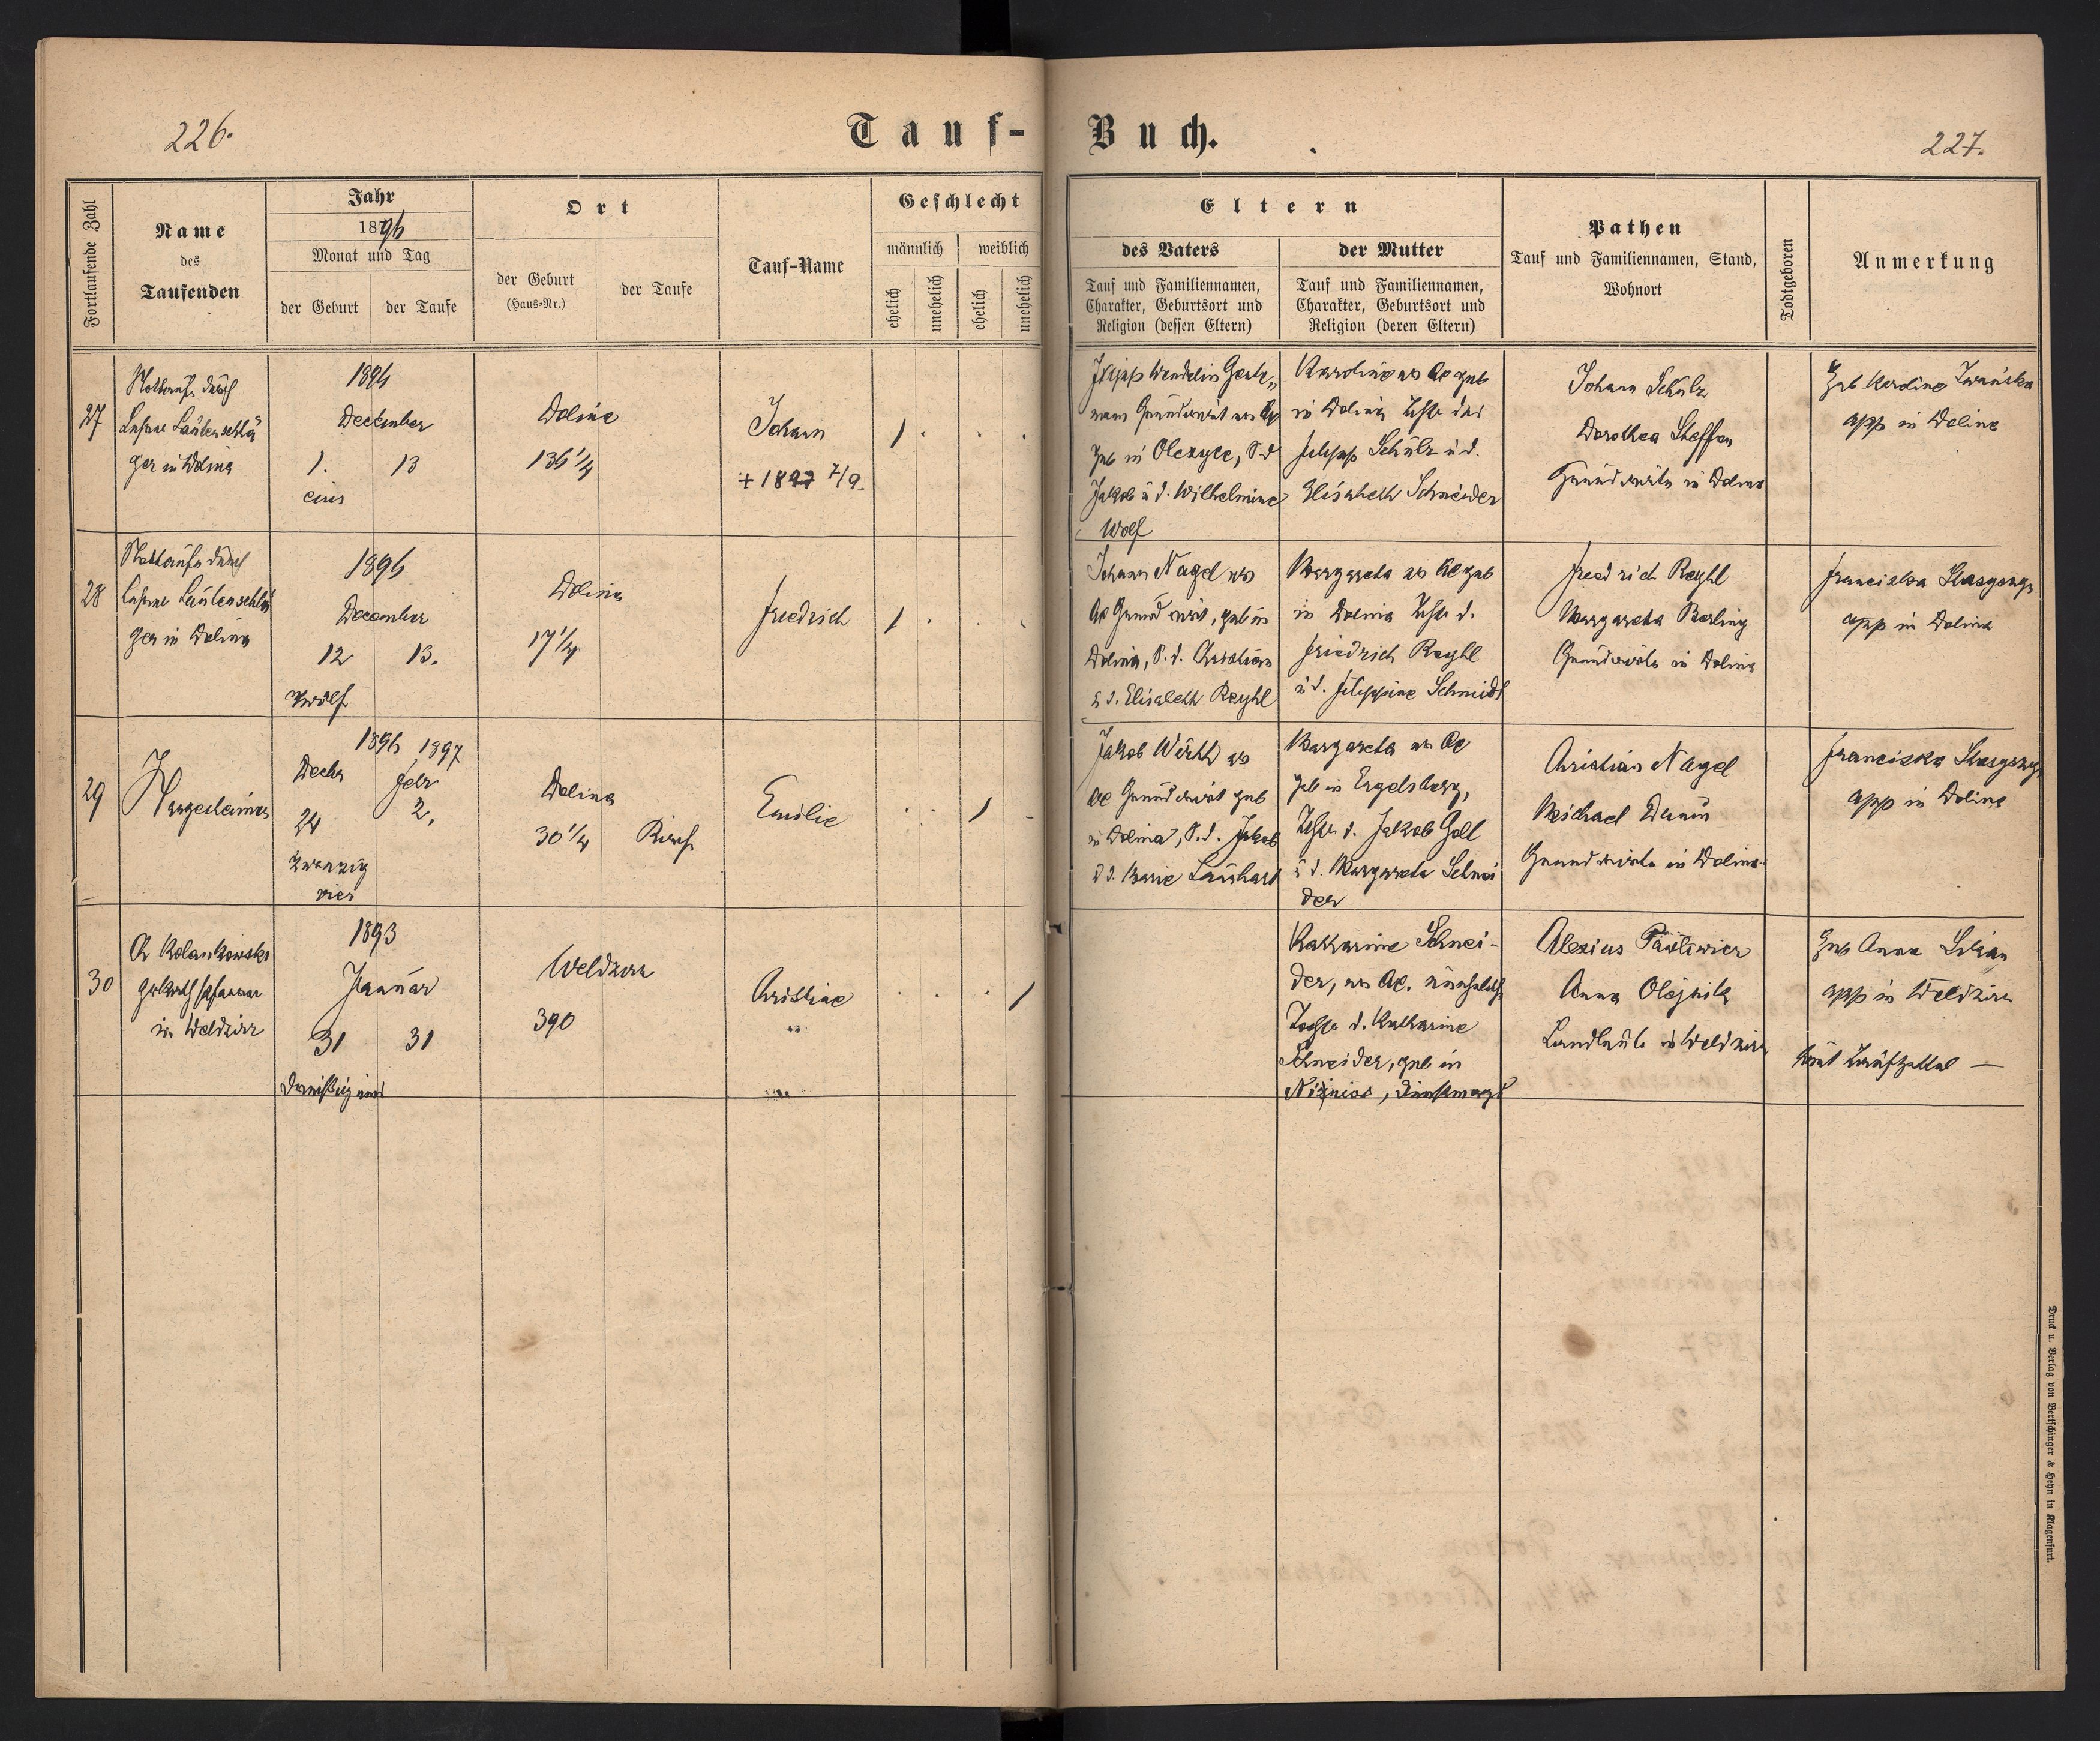 226.
Tauf-
Buch.
227.
Fortlaufende Zahl
Name
des
Taufenden
Jahr
1896
Monat und Tag
der Geburt
der Taufe
Ort
der Geburt
(Haus-Nr.)
der Taufe
Tauf-Name
Geschlecht
männlich
weiblich
ehelich
unehelich
ehelich
unehelich
Eltern
des Vaters
Tauf und Familiennamen,
Charakter, Geburtsort und
Religion (dessen Eltern)
der Mutter
Tauf und Familiennamen,
Charakter, Geburtsort und
Religion (deren Eltern)
Pathen
Tauf und Familiennamen, Stand,
Wohnort
Todtgeboren
Anmerkung
27
Nottaufe durch
Lehrer Lautenschlä
ger in Dolina
1896
December
1. 13
eins
Dolina
136 1/4
Johann
+ 1897 7/9.
1
Wendelin
geb in Oleszyce, S. d
Jakob u d. Wilhelmine
Wolf
Karoline geb
in Dolina
Schulz u d.
Elisabeth Schneider
Johann Schulz
Dorothea Steffen
Grundwirte in Dolina
Geb Karoline Iwańska
app in Dolina
28
Nottaufe durch
Lehrer Lautenschlä
ger in Dolina
1896
December
12 13.
zwölf
Dolina
17 1/4
Friedrich
1
Johann Nagel
Grundwirt, geb in
Dolina, S. d. Christian
u d. Elisabeth Reyhl
Margareta geb
in Dolina d.
Friedrich Reyhl
u d. Filippine Schmidt
Friedrich Reyhl
Margareta Berling
Grundwirte in Dolina
Franciska
app in Dolina
29
Hargesheimer
1896 1897
Decbr Febr
24 2.
zwanzig
vier
Dolina
30 1/4 Kirche
Emilie
1
Jakob Wirth
Grundwirt geb
in Dolina, S. d. Jakob
u d. Marie
Margareta
geb in Engelsberg,
d. Jakob Goll
u d. Margareta Schnei
der
Christian Nagel
Michael
Grundwirte in Dolina
Franciszka
app in Dolina
30
Kolankowski
Pfarrer
in Weldzirz
1893
Januar
31 31
Dreissig eins
Weldzirz
390
Christine
1
Katharine Schnei-
der, unehelich
Tochter d. Katharine
Schneider, geb in
Dienstmagd
Alexius
Anna Olejnik
Landleute in Weldzirz
Geb Anna
app in Weldzirz
laut Taufzettel —
Druck u. Verlag von Bertschinger & Heyn in Klagenfurt.